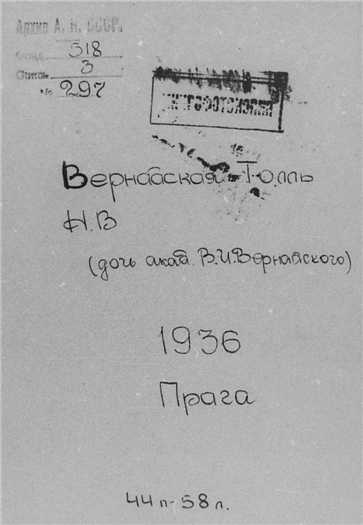 Архив А. Н. СССР.
фонд 518
Опись 3
№ 297
МИКРОФОТОКОПИЯ
Вернадская-Толль
Н.В
(дочь акад. В.И.Вернадского)
1936
Прага
44п-58л.